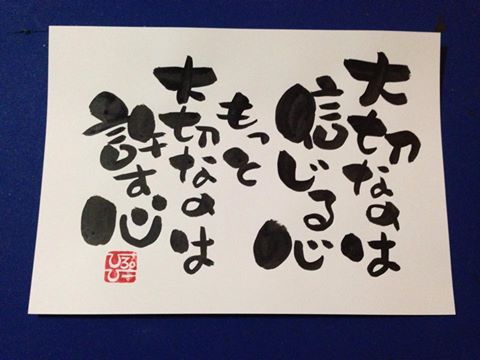 大切なのは
信じる心
もっと
大切なのは
許す心